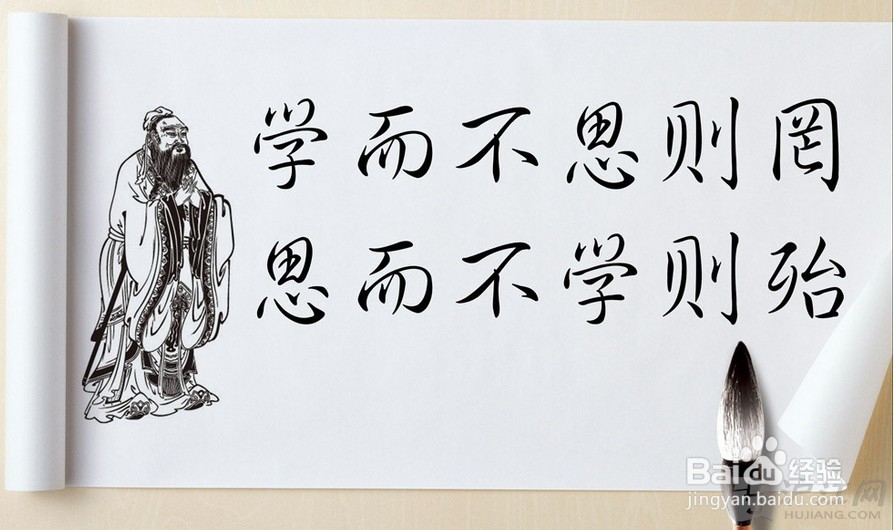 学而不思则罔
思而不学则殆
Baidu 经验
jingyan.baidu.com
HUJIANG.COM